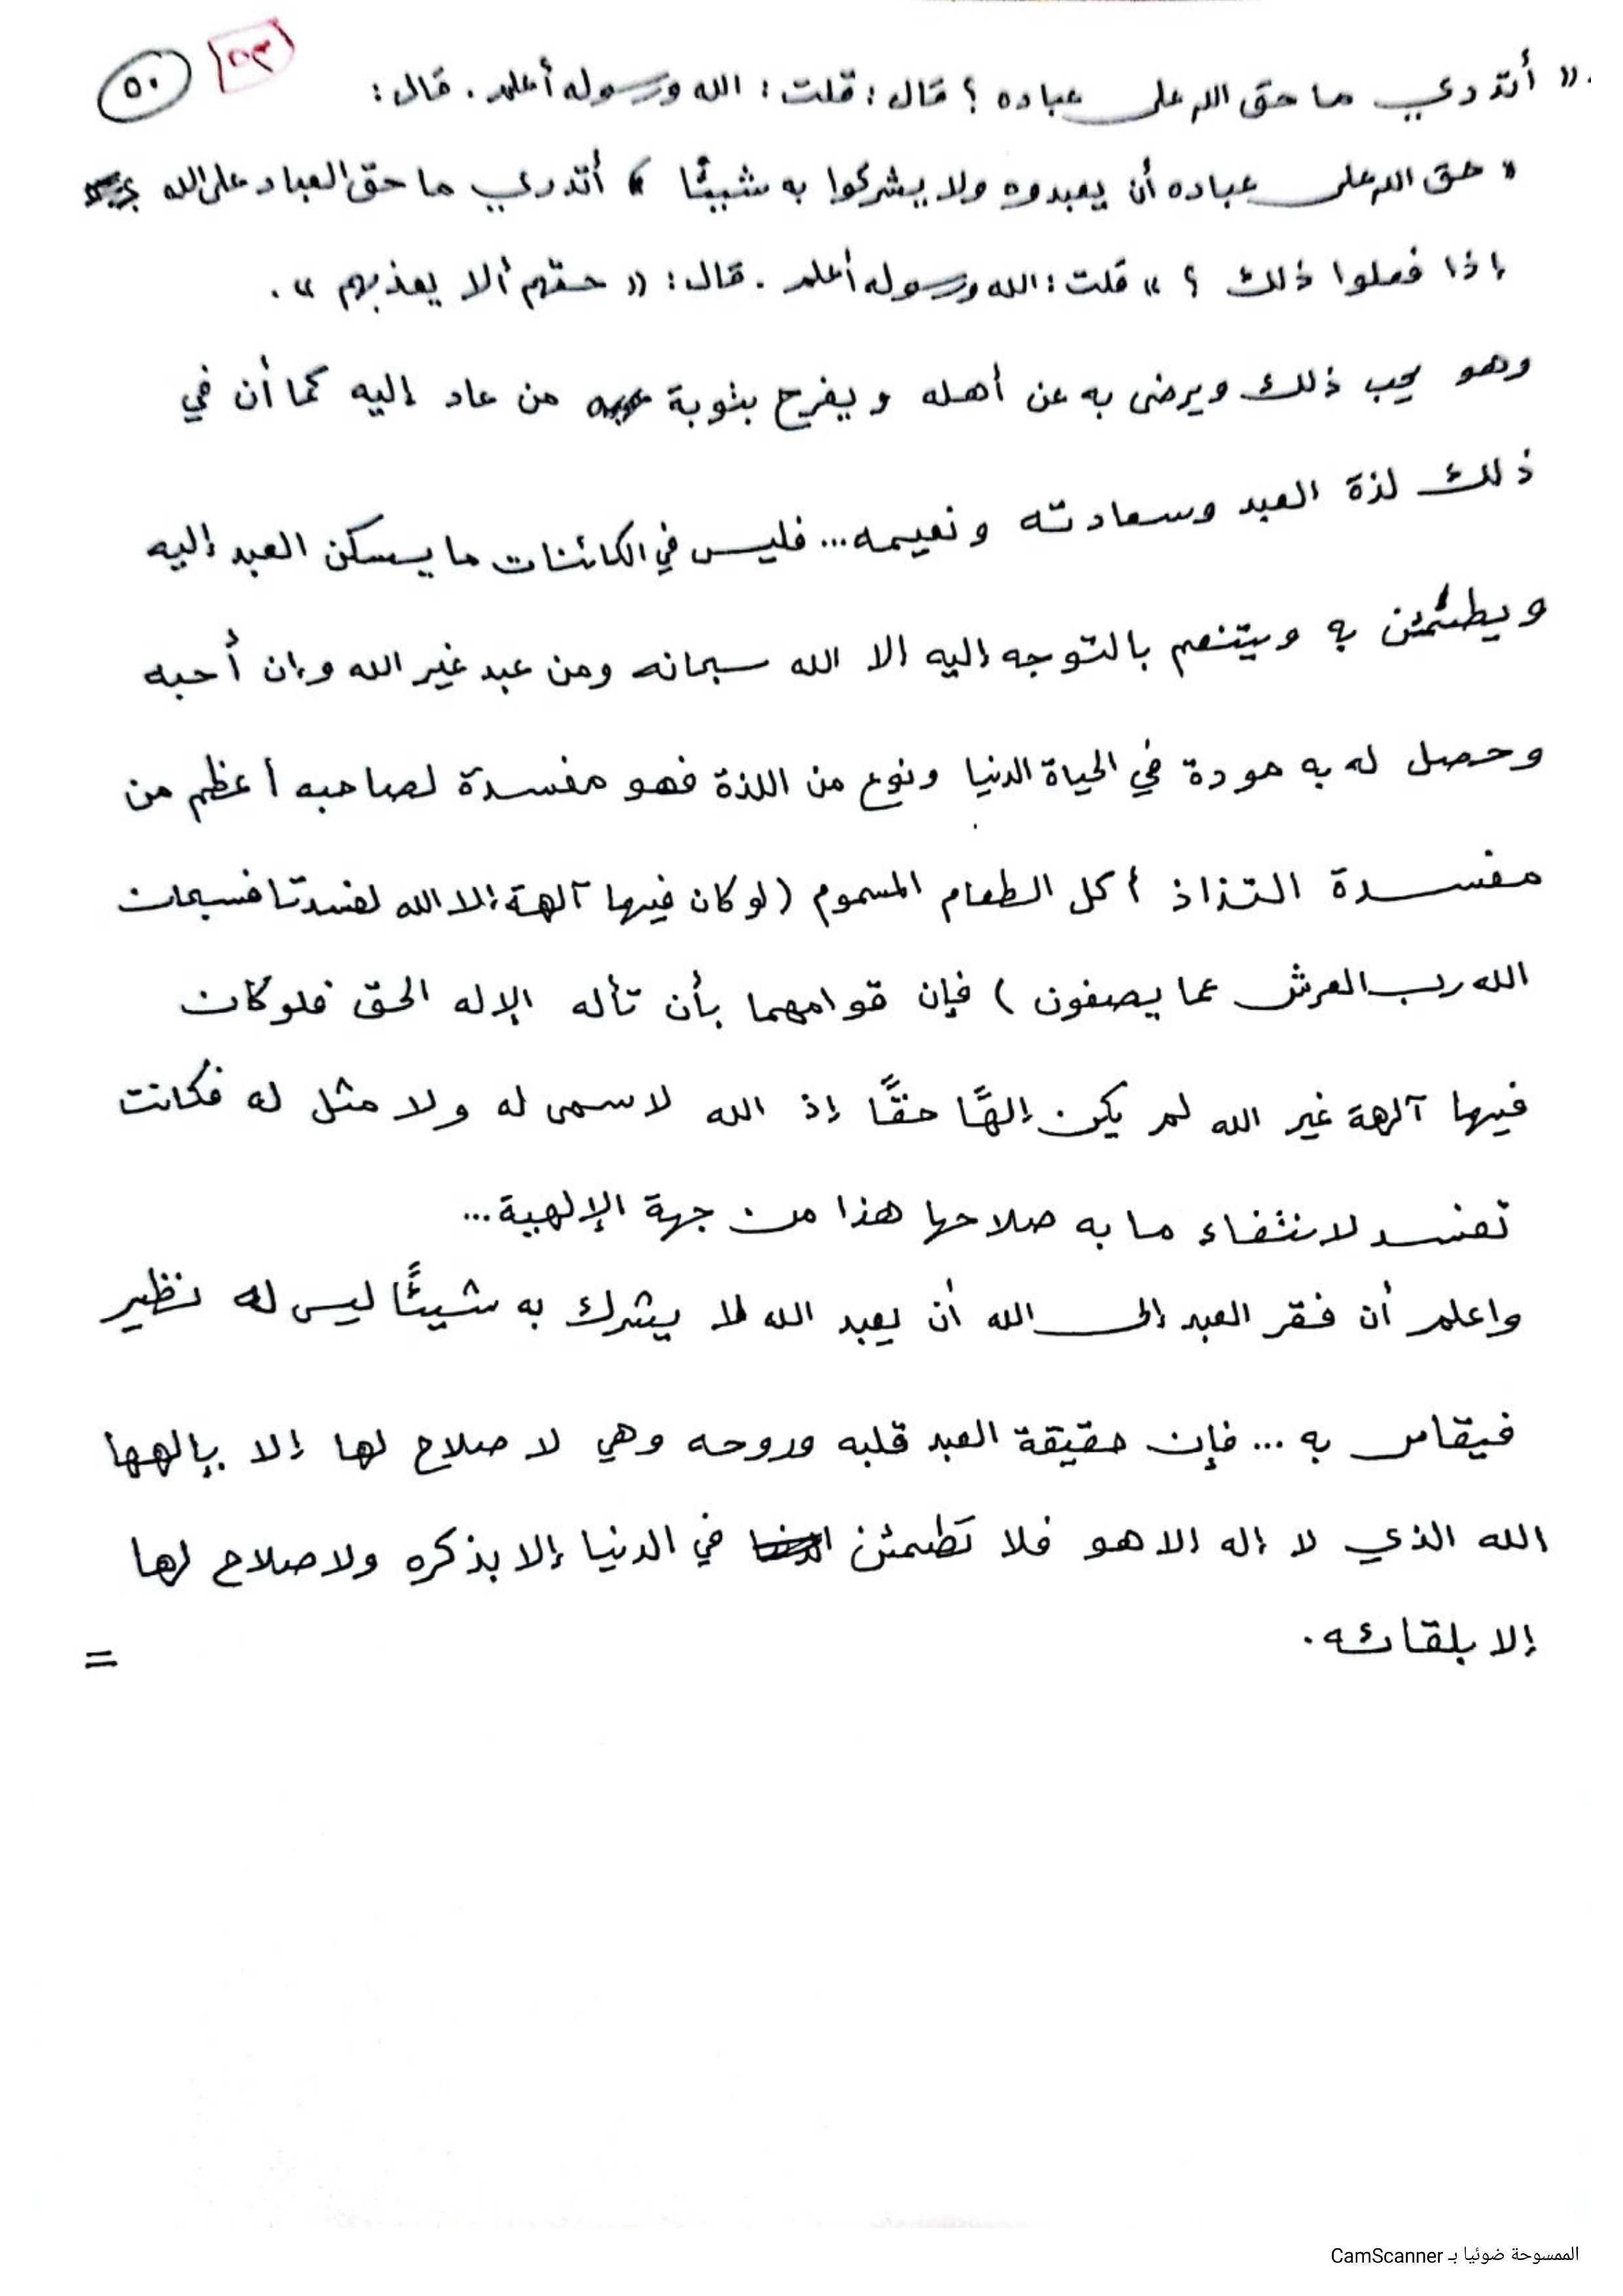 ٥٣
٥٠
« أتدري ما حق الله على عباده ؟ قال : قلت : الله ورسوله أعلم . قال :
« حق الله على عباده أن يعبدوه ولا يشركوا به شيئًا » أتدري ما حق العباد على الله
إذا فعلوا ذلك ؟ » قلت : الله ورسوله أعلم . قال : « حقهم ألا يعذبهم » .
وهو يحب ذلك ويرضى به عن أهله ويفرح بتوبة من عاد إليه كما أن في
ذلك لذة العبد وسعادته ونعيمه... فليس في الكائنات ما يسكن العبد إليه
ويطمئن به ويتنعم بالتوجه إليه الا الله سبحانه ومن عبد غير الله وإن أحبه
وحصل له به مودة في الحياة الدنيا ونوع من اللذة فهو مفسدة لصاحبه أعظم من
مفسدة التذاذ أكل الطعام المسموم (لو كان فيهما آلهة إلا الله لفسدتا فسبحان
الله رب العرش عما يصفون) فإن قوامهما بأن تأله الإله الحق فلو كان
فيهما آلهة غير الله لم يكن إلهًا حقًّا إذ الله لا سمى له ولا مثل له فكانت
تفسد لانتفاء ما به صلاحها هذا من جهة الإلهية...
واعلم أن فقر العبد إلى الله أن يعبد الله لا يشرك به شيئًا ليس له نظير
فيقاس به ... فإن حقيقة العبد قلبه وروحه وهي لا صلاح لها إلا بإلهها
الله الذي لا إله الا هو فلا تطمئن في الدنيا إلا بذكره ولا صلاح لها
إلا بلقائه .
=
الممسوحة ضوئيا بـ CamScanner